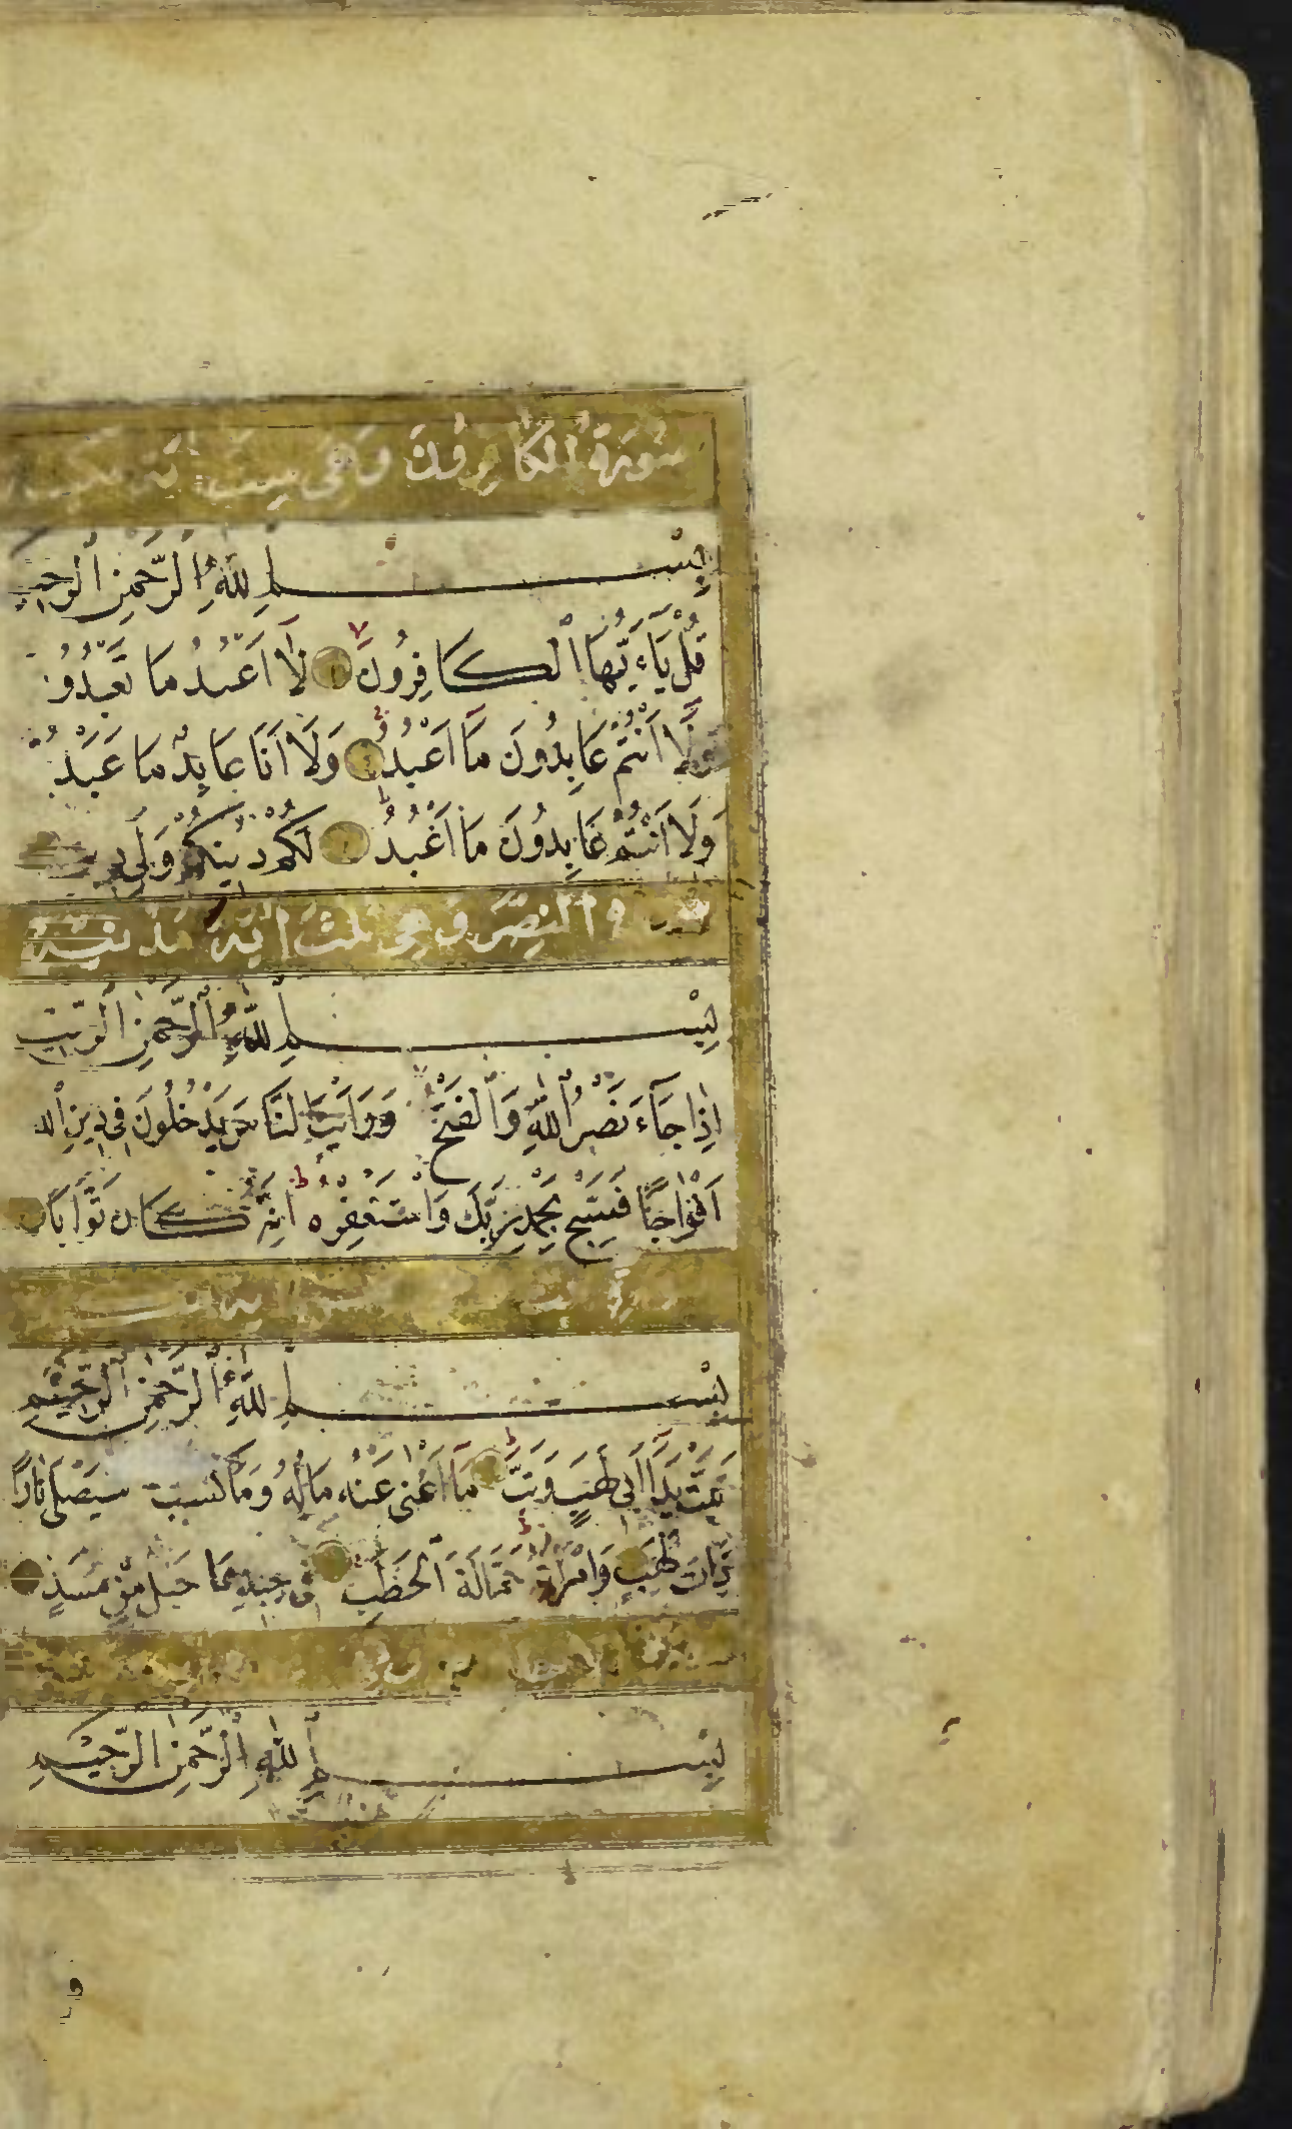 سُورَةُ الْكَافِرُونَ وَهِيَ سِتُّ
بِسْمِ اللهِ الرَّحْمٰنِ الرَّحِيمِ
قُلْ يَاءَيُّهَا الْكَافِرُونَ لَا اَعْبُدُ مَا تَعْبُدُونَ
وَلَا اَنْتُمْ عَابِدُونَ مَا اَعْبُدُ وَلَا اَنَا عَابِدٌ مَا عَبَدْتُمْ
وَلَا اَنْتُمْ عَابِدُونَ مَا اَعْبُدُ لَكُمْ دِينُكُمْ وَلِيَ دِينِ
النَّصْرِ وَهِيَ ثَلٰثُ اٰيَة مَدَنِيَّة
بِسْمِ اللهِ الرَّحْمٰنِ الرَّحِيمِ
اِذَا جَآءَ نَصْرُ اللهِ وَالْفَتْحُ وَرَاَيْتَ النَّاسَ يَدْخُلُونَ فِي دِينِ اللهِ
اَفْوَاجًا فَسَبِّحْ بِحَمْدِ رَبِّكَ وَاسْتَغْفِرْهُ اِنَّهُ كَانَ تَوَّابًا
بِسْمِ اللهِ الرَّحْمٰنِ الرَّحِيمِ
تَبَّتْ يَدَا اَبِي لَهَبٍ وَتَبَّ مَا اَغْنٰى عَنْهُ مَالُهُ وَمَا كَسَبَ سَيَصْلٰى نَارًا
ذَاتَ لَهَبٍ وَامْرَاَتُهُ حَمَّالَةَ الْحَطَبِ فِي جِيدِهَا حَبْلٌ مِنْ مَسَدٍ
بِسْمِ اللهِ الرَّحْمٰنِ الرَّحِيمِ